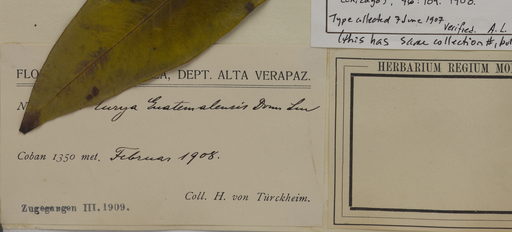 (Chicago), 46: 109. 1908.
Type collected 7 June 1907
verified. A. L.
(this has same collection #, but
HERBARIUM REGIUM MO
FLO A, DEPT. ALTA VERAPAZ.
N urya Guatemalensis Donn Sm
Coban 1350 met. Februar 1908.
Coll. H. von Türckheim.
Zugegangen III. 1909.